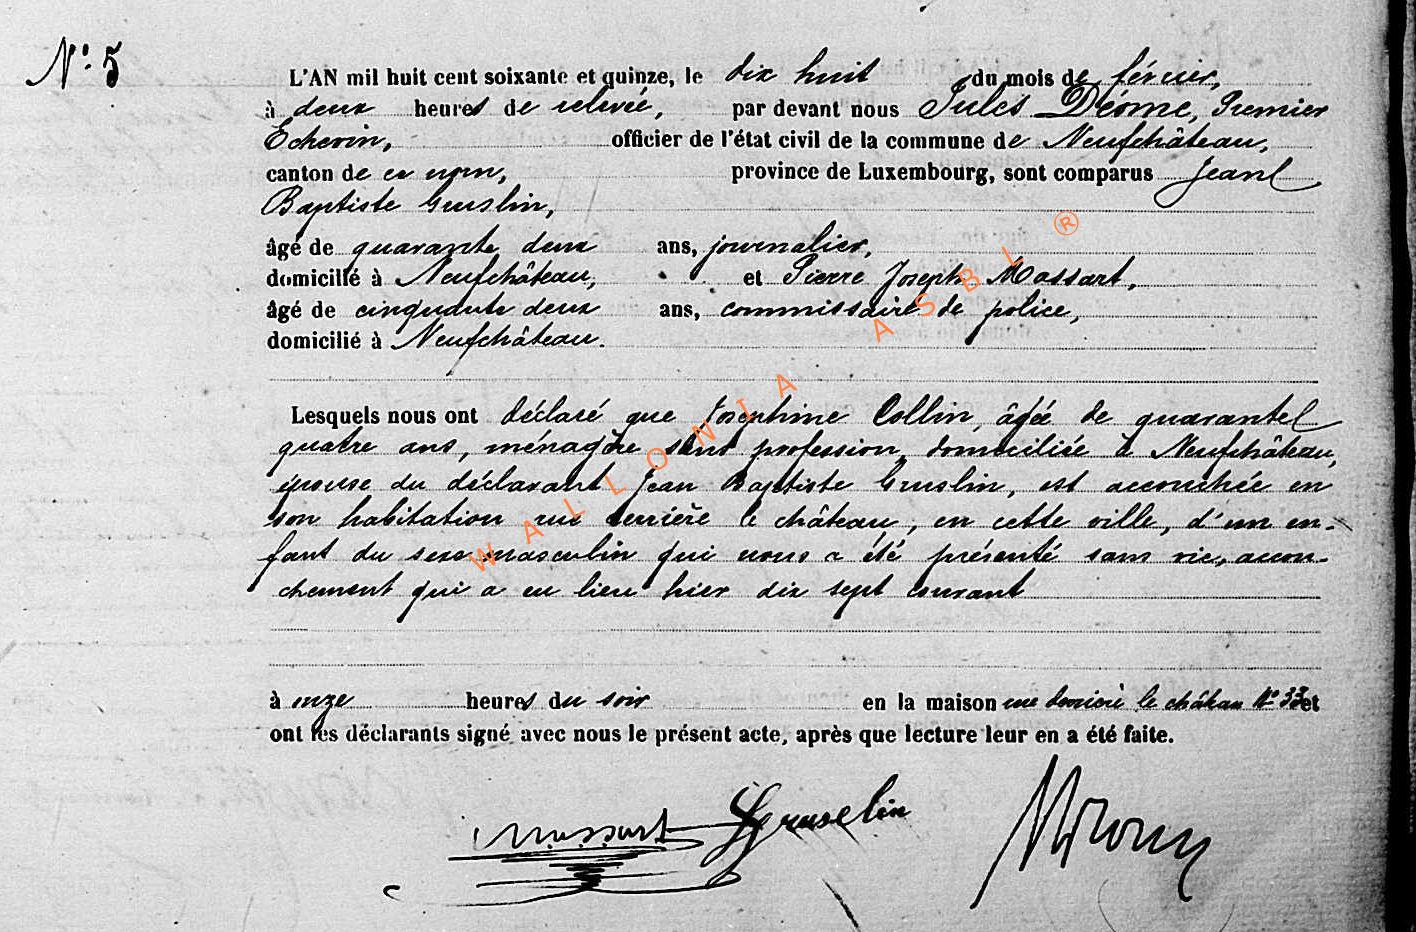 N° 5
L'AN mil huit cent soixante et quinze, le dix huit du mois de février,
à deux heures de relevée, par devant nous Jules Déome, Premier
Echevin, officier de l'état civil de la commune de Neufchâteau,
canton de ce nom, province de Luxembourg, sont comparus Jean
Baptiste Gruslin,
âgé de quarante deux ans, journalier,
domicilié à Neufchâteau, et Pierre Joseph Massart,
âgé de cinquante deux ans, commissaire de police,
domicilié à Neufchâteau.
Lesquels nous ont déclaré que Joséphine Collin, âgée de quarante
quatre ans, ménagère sans profession, domiciliée à Neufchâteau,
épouse du déclarant Jean Baptiste Gruslin, est accouchée en
son habitation rue derrière le château, en cette ville, d'un en-
fant du sexe masculin qui nous a été présenté sans vie, accou-
chement qui a eu lieu hier dix sept courant
à onze heures du soir en la maison rue derrière le château N° 33 et
ont les déclarants signé avec nous le présent acte, après que lecture leur en a été faite.
Massart Gruselin
WALLONIA ASBL ®